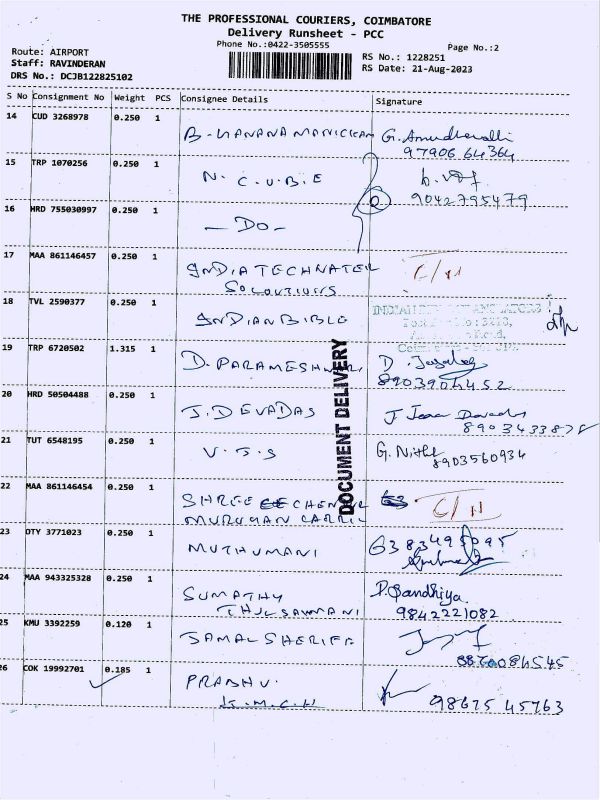 THE PROFESSIONAL COURIERS, COIMBATORE
Delivery Runsheet - PCC
Phone No.:0422-3505555
Page No.:2
Route: AIRPORT
Staff: RAVINDERAN
DRS No.: DCJB122825102
RS No.: 1228251
RS Date: 21-Aug-2023
S No Consignment No Weight PCS Consignee Details Signature
14 CUD 3268978 0.250 1
97906 64364
15 TRP 1070256 0.250 1 N. C.U.B.E
9042795479
16 HRD 755030997 0.250 1 - DO -
17 MAA 861146457 0.250 1 INDIATECHWATER C/H
SOLOUTIONS
18 TVL 2590377 0.250 1 INDIAN BIBLE
19 TRP 6720502 1.315 1 D. PARAMESHWARI
8903904452
20 HRD 50504488 0.250 1 J. DEVADAS
8903433878
21 TUT 6548195 0.250 1 V.J.S G. Nithi
8903560934
22 MAA 861146454 0.250 1 SHREE CHENDUR C/H
MURUGAN CARRIE
23 OTY 3771023 0.250 1 MUTHUMANI 6383495095
24 MAA 943325328 0.250 1 SUMATHY P. Sandhiya
THULSAMANI 9842221082
25 KMU 3392259 0.120 1 JAMAL SHERIFF
26 COK 19992701 0.185 1 PRABHU.
K.M.C.H 98675 45763
DOCUMENT DELIVERY